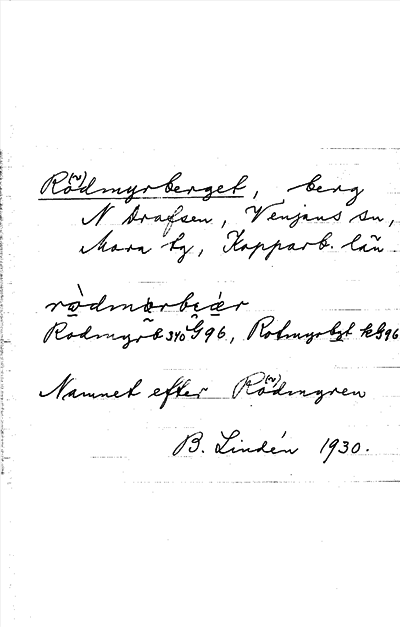 Rö(~)dmyrberget, berg
N Drafsen, Venjans sn,
Mora tg, Kopparb. län
Rödmyrb 340 G96, Rotmyrbgt kG96
Namnet efter Rö(~)dmyren
B. Lindén 1930.